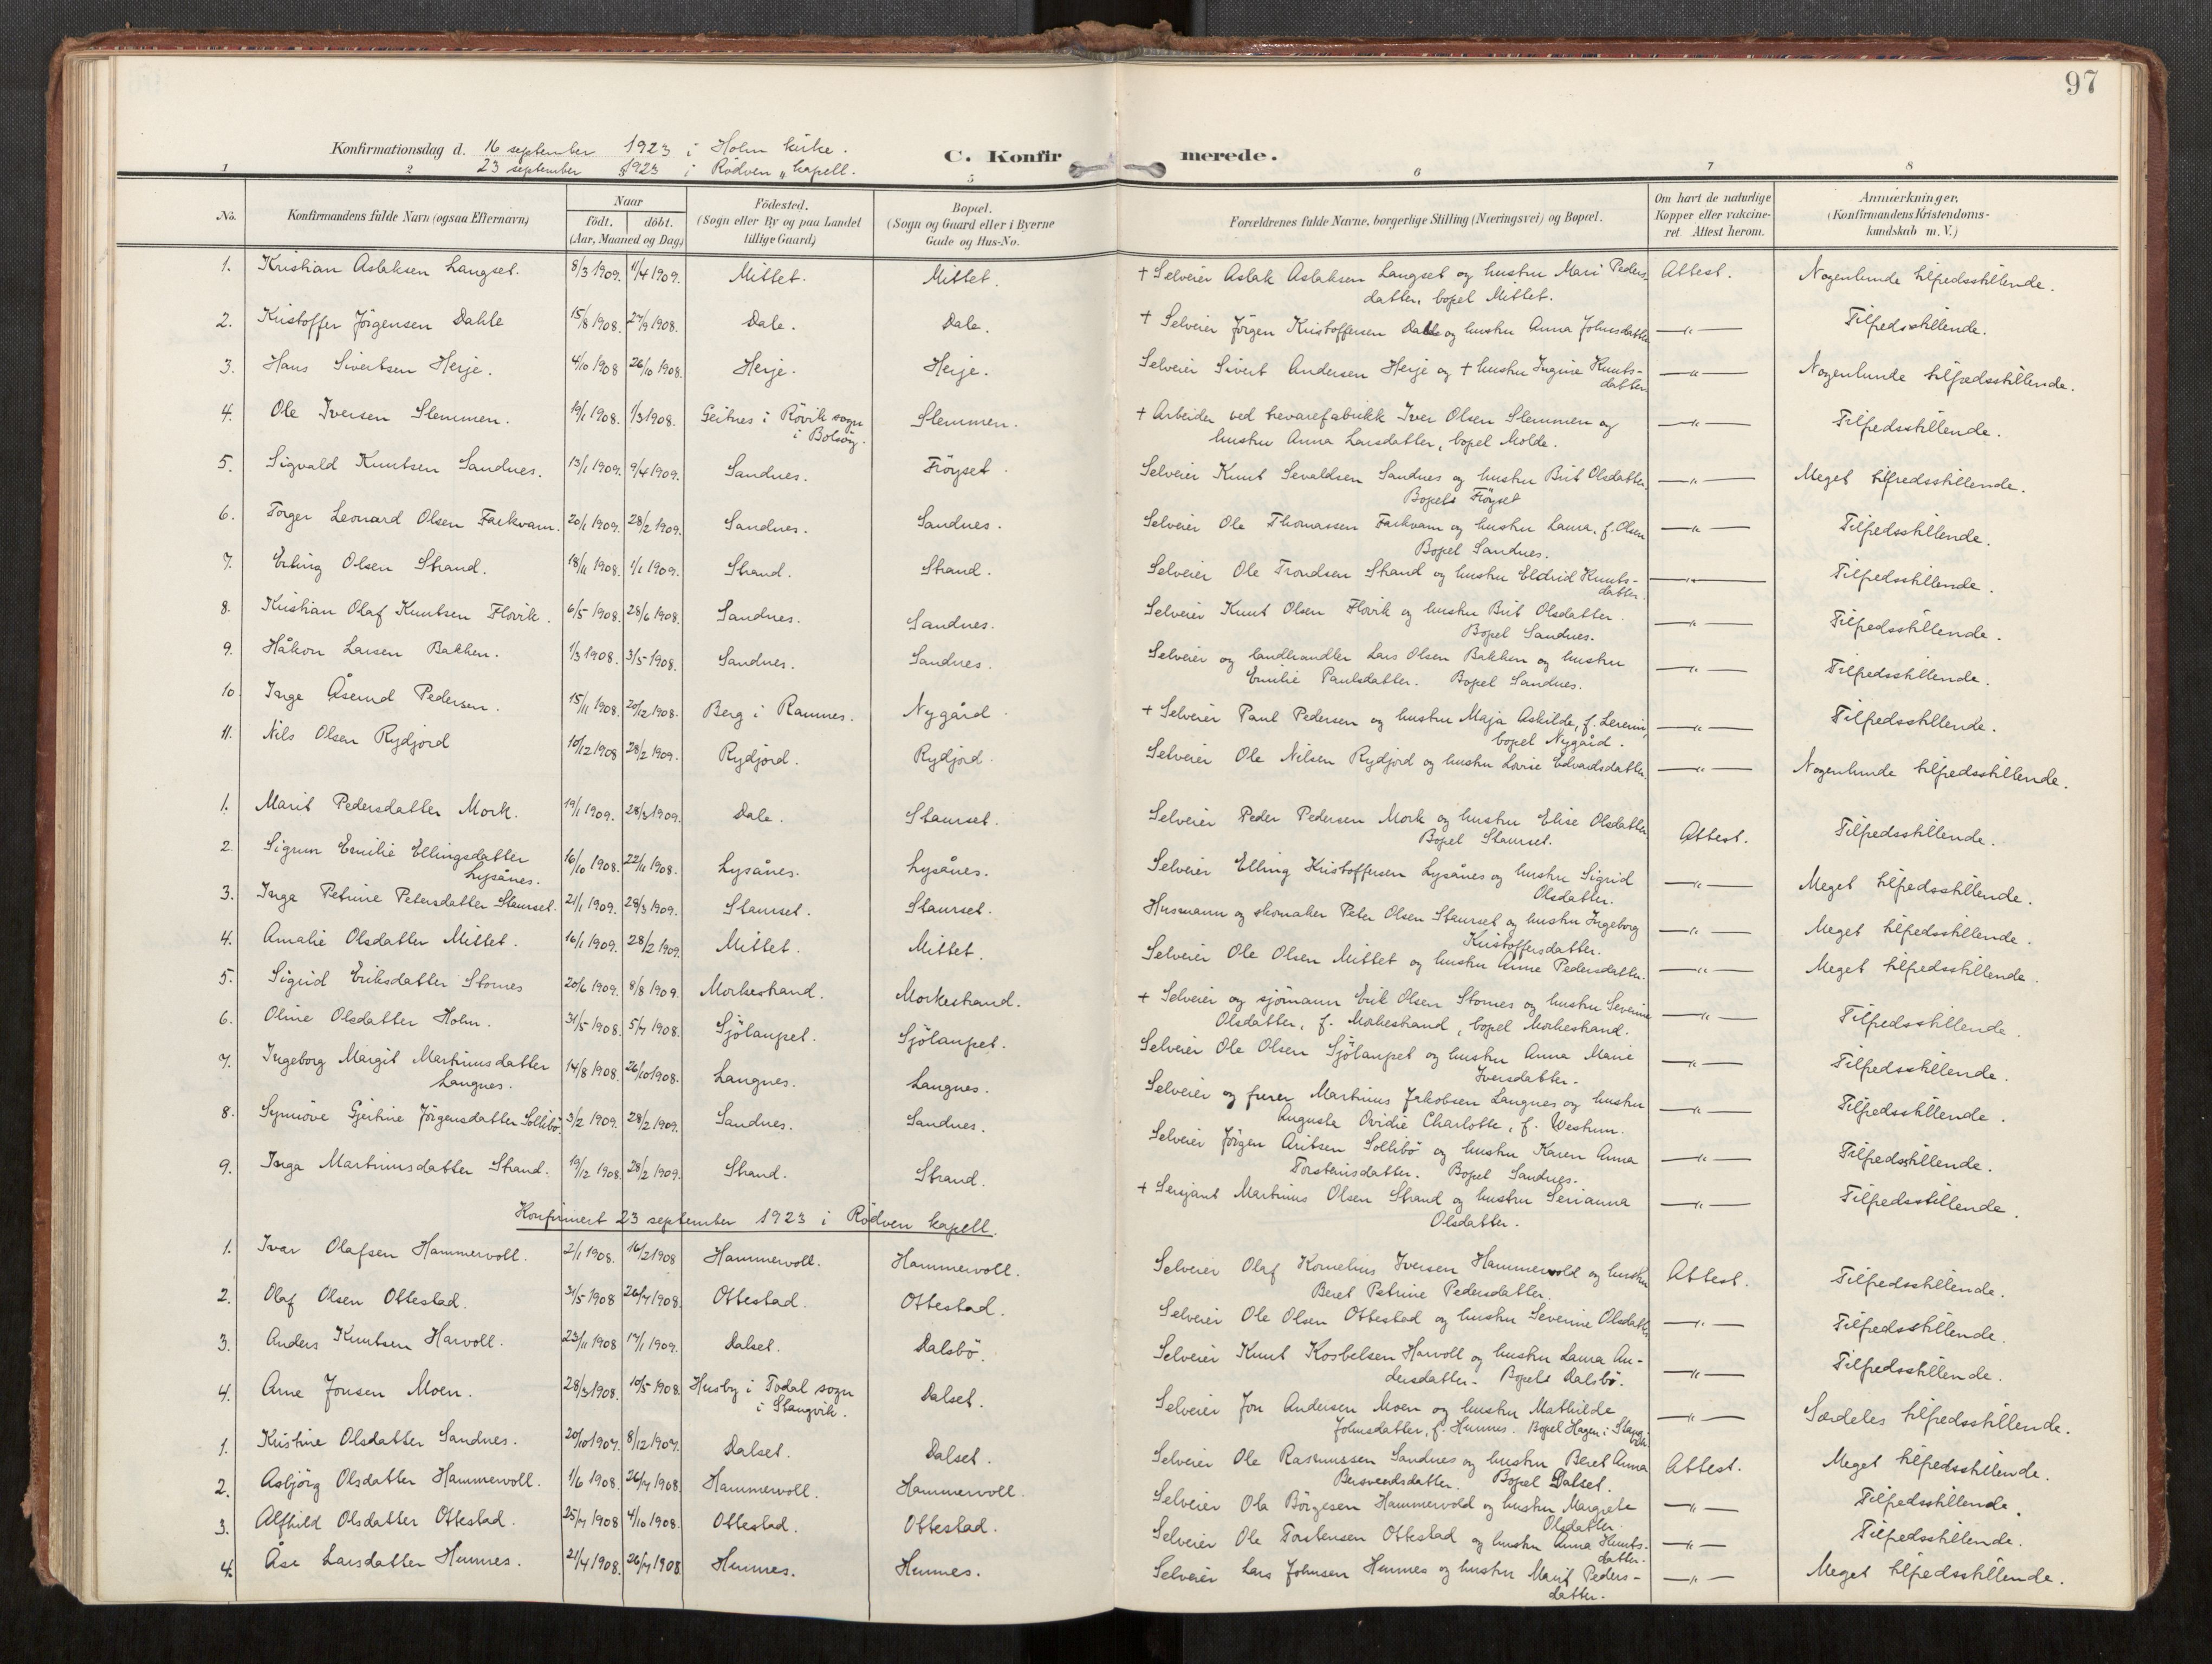 97
Konfirmationsdag d. 16 september 1923 i Holm kirke.
23 september 1923 i Rödven „ kapell.
C. Konfirmerede.
1 2 5 6 7 8
No. Konfirmandens fulde Navn (ogsaa Efternavn) Naar födt. döbt. (Aar, Maaned og Dag) Födested. (Sogn eller By og paa Landet tillige Gaard) Bopæl. (Sogn og Gaard eller i Byerne Gade og Hus-No. Forældrenes fulde Navne, borgerlige Stilling (Næringsvei) og Bopæl. Om havt de naturlige Kopper eller vakcineret. Attest herom. Anmærkninger. (Konfirmandens Kristendomskundskab m. V.)
1. Kristian Aslaksen Langset. 8/3 1909. 11/4 1909. Mittet. Mittet. + Selveier Aslak Aslaksen Langset og hustru Mari Peders-
datter, bopel Mittet. Attest. Nogenlunde tilfredsstillende.
2. Kristoffer Jörgensen Dahle 15/8 1908. 27/9 1908. Dale. Dale. + Selveier Jörgen Kristoffersen Dahle og hustru Anna Johnsdatter —„— Tilfredsstillende.
3. Hans Sivertsen Herje. 4/10 1908 26/10 1908. Herje. Herje. Selveier Sivert Andersen Herje og + hustru Ingine Knuts-
datter —„— Nogenlunde tilfredsstillende.
4. Ole Iversen Slemmen. 19/1 1908. 1/3 1908. Geitnes i Rövik sogn
i Bolsöy. Slemmen. + Arbeider ved trevarefabrikk Iver Olsen Slemmen og
hustru Anna Larsdatter, bopel Molde. —„— Tilfredsstillende.
5. Sigvald Knutsen Sandnes. 13/1 1909. 9/4 1909. Sandnes. Fröyset. Selveier Knut Sevaldsen Sandnes og hustru Brit Olsdatter.
Bopel Fröyset —„— Meget tilfredsstillende.
6. Torger Leonard Olsen Farkvam. 20/1 1909. 28/2 1909. Sandnes. Sandnes. Selveier Ole Thomassen Farkvam og hustru Laura, f. Olsen
Bopel Sandnes. —„— Tilfredsstillende.
7. Erling Olsen Strand. 18/11 1908. 1/1 1909. Strand. Strand. Selveier Ole Trondsen Strand og hustru Eldrid Knuts-
datter. —„— Tilfredsstillende.
8. Kristian Olaf Knutsen Flovik. 6/5 1908. 28/6 1908. Sandnes. Sandnes. Selveier Knut Olsen Flovik og hustru Brit Olsdatter.
Bopel Sandnes. —„— Tilfredsstillende.
9. Håkon Larsen Bakken. 1/3 1908. 3/5 1908. Sandnes. Sandnes. Selveier og landhandler Lars Olsen Bakken og hustru
Emilie Paulsdatter. Bopel Sandnes. —„— Tilfredsstillende.
10. Inge Åsmund Pedersen. 15/11 1908. 20/12 1908. Berg i Ramnes. Nygård. + Selveier Paul Pedersen og hustru Maja Askilde, f.
bopel Nygård. —„— Tilfredsstillende.
11. Nils Olsen Rydjord 10/12 1908 28/2 1909. Rydjord. Rydjord. Selveier Ole Nilsen Rydjord og hustru Lovise Edvardsdatter —„— Nogenlunde tilfredsstillende.
1. Marit Pedersdatter Mork. 19/1 1909. 28/3 1909. Dale. Staurset. Selveier Peder Pedersen Mork og hustru Elise Olsdatter
Bopel Staurset. Attest. Tilfredsstillende.
2. Sigrun Emilie Ellingsdatter
Lysånes. 16/10 1908. 22/11 1908. Lysånes. Lysånes. Selveier Elling Kristoffersen Lysånes og hustru Sigrid
Olsdatter. —„— Meget tilfredsstillende.
3. Inga Petrine Petersdatter Staurset. 21/1 1909. 28/3 1909. Staurset. Staurset. Husmann og skomaker Peter Olsen Staurset og hustru Ingeborg
Kristoffersdatter. —„— Meget tilfredsstillende.
4. Amalie Olsdatter Mittet. 16/1 1909. 28/2 1909. Mittet. Mittet. Selveier Ole Olsen Mittet og hustru Anne Pedersdatter. —„— Meget tilfredsstillende.
5. Sigrid Eriksdatter Stornes 20/6 1909. 8/8 1909. Morkestrand. Morkestrand. + Selveier og sjömann Erik Olsen Stornes og hustru Severine
Olsdatter, f. Morkestrand, bopel Morkestrand. —„— Tilfredsstillende.
6. Oline Olsdatter Holm. 31/5 1908. 5/7 1908. Sjölaupet. Sjölaupet. Selveier Ole Olsen Sjölaupet og hustru Anna Marie
Iversdatter. —„— Tilfredsstillende.
7. Ingeborg Margit Martinusdatter
Langnes. 14/8 1908. 26/10 1908. Langnes. Langnes. Selveier og furer Martinus Jakobsen Langnes og hustru
Augusta Ovidie Charlotte, f. Westrum. —„— Tilfredsstillende.
8. Synnöve Gjertine Jörgensdatter Sollibö. 3/2 1909. 28/2 1909. Sandnes. Sandnes. Selveier Jörgen Aritsen Sollibö og hustru Karen Anna
Torsteinsdatter. Bopel Sandnes. —„— Tilfredsstillende.
9. Inga Martinusdatter Strand. 19/12 1908. 28/2 1909. Strand. Strand. + Sersjant Martinus Olsen Strand og hustru Serianna
Olsdatter. —„— Tilfredsstillende.
Konfirmert 23 september 1923 i Rödven kapell.
1. Ivar Olafsen Hammervoll. 2/1 1908. 16/2 1908 Hammervoll. Hammervoll. Selveier Olaf Kornelius Iversen Hammervold og hustru
Beret Petrine Pedersdatter. Attest. Tilfredsstillende.
2. Olaf Olsen Ottestad. 31/5 1908 26/7 1908. Ottestad. Ottestad. Selveier Ole Olsen Ottestad og hustru Severine Olsdatter —„— Tilfredsstillende.
3. Anders Knutsen Harvoll. 23/11 1908 17/1 1909. Dalset. Dalsbö. Selveier Knut Kosbelsen Harvoll og hustru Laura An-
dersdatter. Bopel Dalsbö. —„— Tilfredsstillende.
4. Arne Jonsen Moen. 28/3 1908. 10/5 1908. Husby i Todal sogn
i Stangvik. Dalset. Selveier Jon Andersen Moen og hustru Mathilde
Johnsdatter, f. Hunnes. Bopel Hagen i Stangvik. —„— Særdeles tilfredsstillende.
1. Kristine Olsdatter Sandnes. 20/10 1907. 8/12 1907. Dalset. Dalset. Selveier Ole Rasmussen Sandnes og hustru Beret Anna
Bersveendsdatter. Bopel Dalset. Attest. Meget tilfredsstillende.
2. Asbjörg Olsdatter Hammervoll. 1/6 1908. 26/7 1908. Hammervoll. Hammervoll. Selveier Ola Börgesen Hammervold og hustru Margrete
Olsdatter. —„— Tilfredsstillende.
3. Alfhild Olsdatter Ottestad. 25/7 1908 4/10 1908. Ottestad. Ottestad. Selveier Ole Torstensen Ottestad og hustru Anna Knuts-
datter. —„— Tilfredsstillende.
4. Åse Larsdatter Hunnes. 21/4 1908. 26/7 1908 Hunnes. Hunnes. Selveier Lars Johnsen Hunnes og hustru Marit Peders-
datter. —„— Meget tilfredsstillende.